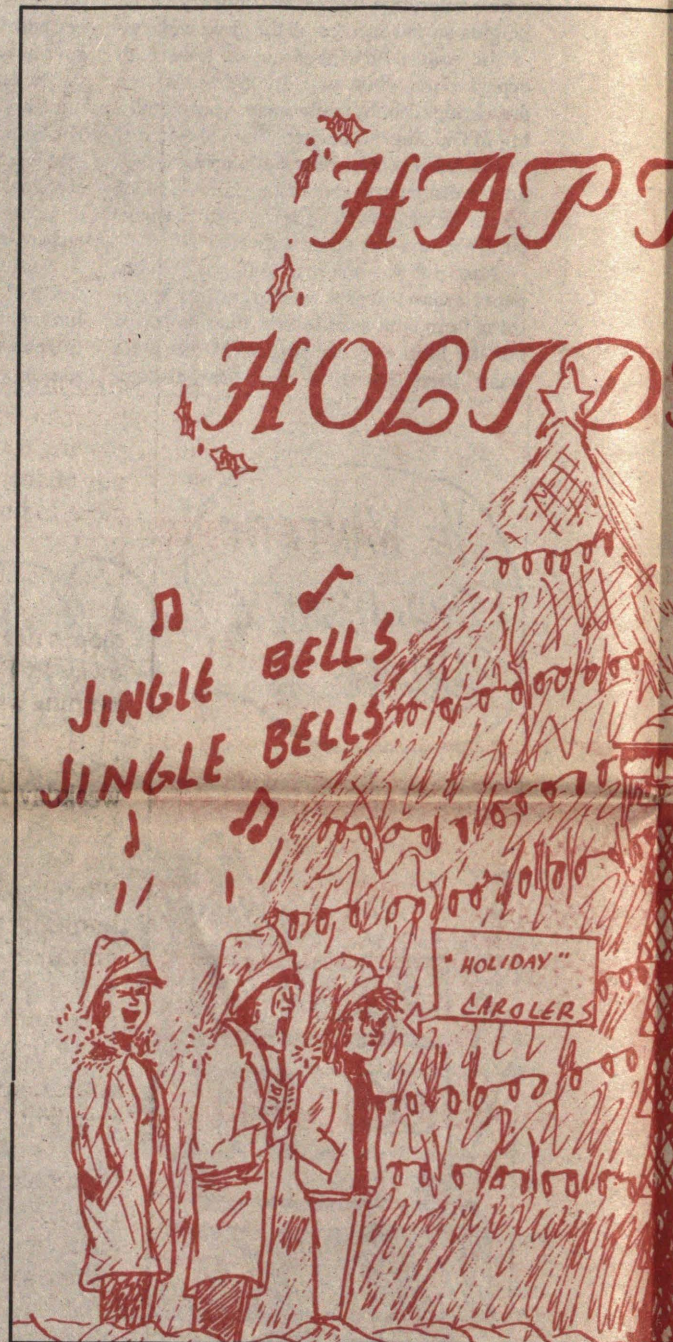 HAPP
HOLIDA
JINGLE BELLS
JINGLE BELLS
"HOLIDAY"
CAROLERS